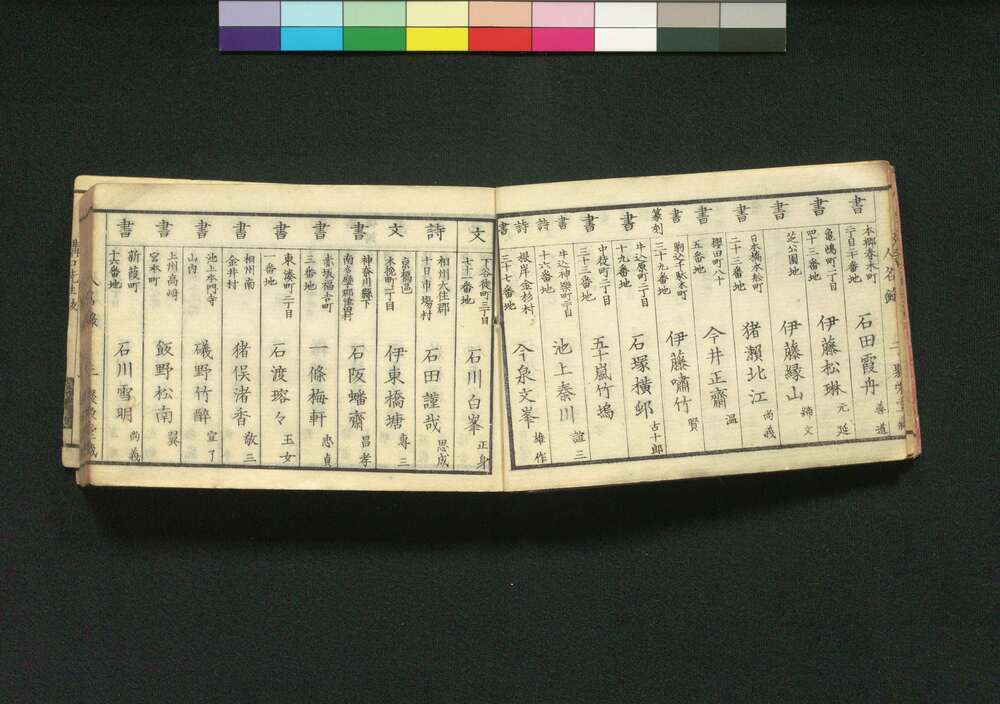 書
本郷春木町
二丁目二十番地
石田霞舟
善道
書
亀嶋町二丁目
四十三番地
伊藤松琳
元延
書
芝公園地
伊藤緑山
締文
書
日本橋本舩町
二十三番地
猪瀬北江
尚義
書
櫻田町八十
五番地
今井正齋
温
書
篆刻
駒込千駄木町
三十九番地
伊藤嘯竹
賢
書
牛込原町二丁目
十九番地
石塚横邨
古十郎
書
中徒町三丁目
五十嵐竹塢
書
詩
牛込神樂町二丁目
十六番地
池上秦川
誼三
詩
書
根岸金杉村
三十七番地
今泉文峯
雄作
文
下谷徒町三丁目
七十二番地
石川白峯
正身
詩
相州大住郡
十日市塲村
石田謹哉
思成
文
京橋區
木挽町一丁目
伊東橋塘
專三
書
神奈川縣下
石阪蟠齋
昌孝
書
赤坂福吉町
三番地
一條梅軒
忠貞
書
東湊町二丁目
一番地
石渡瑢々
玉女
書
相州南
金井村
猪俣渚香
敬三
書
池上本門寺
山内
礒野竹醉
宜了
書
上州高崎
宮本町
飯野松南
翼
書
新葭町
十六番地
石川雪明
尚義
人名録